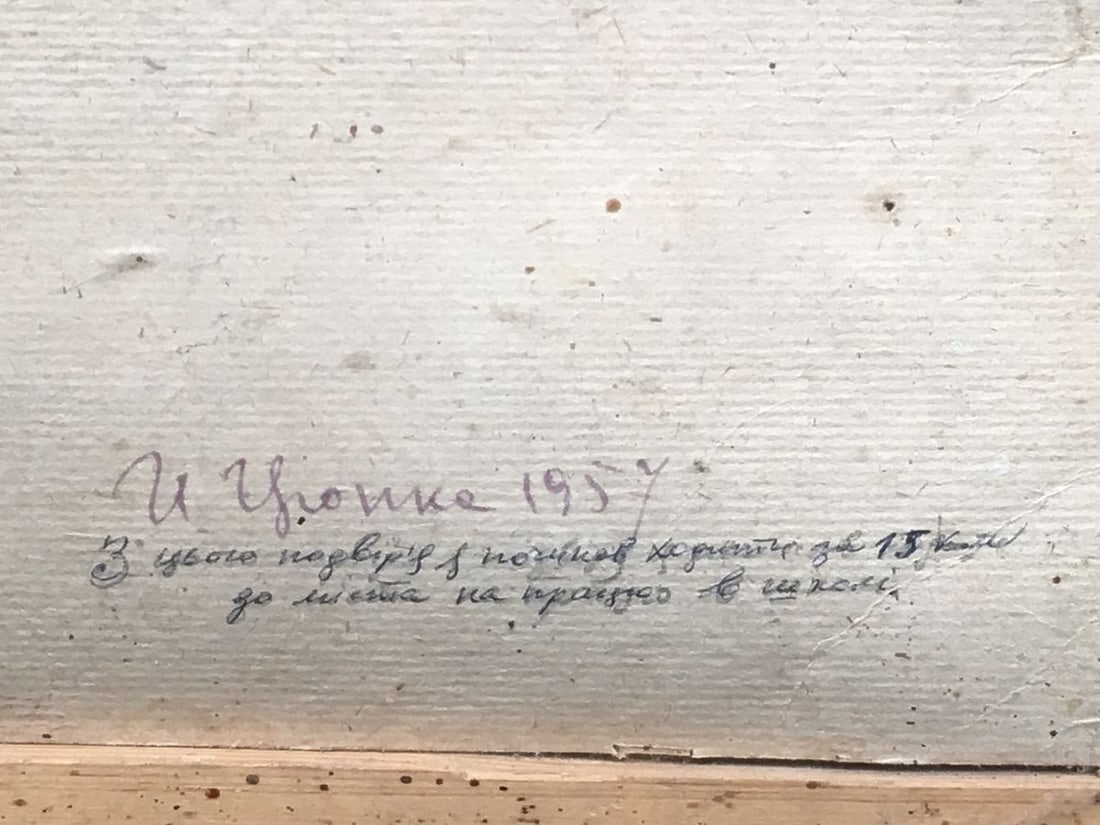 И Цюпка 1957
З цього подвір'я я починав ходити за 15
до міста на працю в школі.